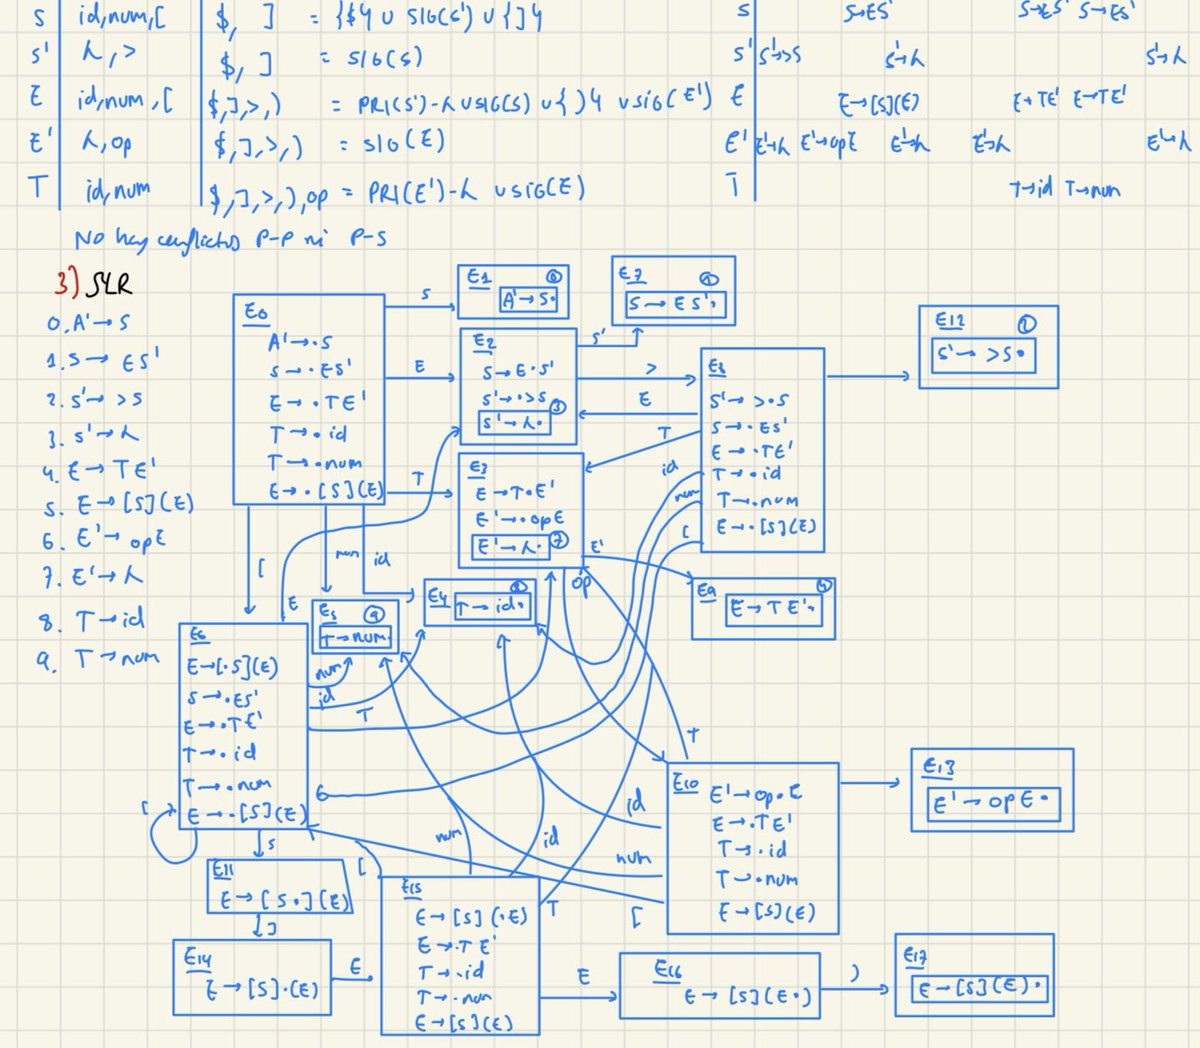 S id,num,[ $, ] = {$} ∪ SIG(S') ∪ {]} S S→ES' S→ES' S→ES'
S' λ,> $, ] = SIG(S) S' S'→>S S'→λ S'→λ
E id,num,[ $,],>,) = PRI(S')-λ∪SIG(S) ∪{)} ∪SIG(E') E E→[S](E) E→TE' E→TE'
E' λ,op $,],>,) = SIG(E) E' E'→λ E'→opE E'→λ E'→λ E'→λ
T id,num $,],>,),op = PRI(E')-λ ∪SIG(E) T T→id T→num
No hay conflictos P-P ni P-S
3) SLR
0. A'→S
1. S→ ES'
2. S'→ >S
3. S'→λ
4. E→ TE'
5. E→[S](E)
6. E'→ opE
7. E'→λ
8. T→id
9. T→num
E0
A'→.S
S→.ES'
E→.TE'
T→.id
T→.num
E→.[S](E)
S
E
T
[
num
id
E1 0
A'→S.
E2
S→E.S'
S'→.>S
S'→λ. 3
S'
>
E
E7 1
S→ES'.
E8
S'→>.S
S→.ES'
E→.TE'
T→.id
T→.num
E→.[S](E)
T
id
num
[
E12 2
S'→>S.
E3
E→T.E'
E'→.opE
E'→λ. 7
E'
op
E9 4
E→TE'.
E4 8
T→id.
E5 9
T→num.
E
E6
E→[.S](E)
S→.ES'
E→.TE'
T→.id
T→.num
E→.[S](E)
num
id
T
[
S
E11
E→[S.](E)
]
E14
E→[S].(E)
E
E15
E→[S](.E)
E→.TE'
T→.id
T→.num
E→[S](E)
[
num
id
T
E
E16
E→[S](E.)
)
E17
E→[S](E).
E10
E'→op.E
E→.TE'
T→.id
T→.num
E→[S](E)
T
id
num
[
E13
E'→opE.